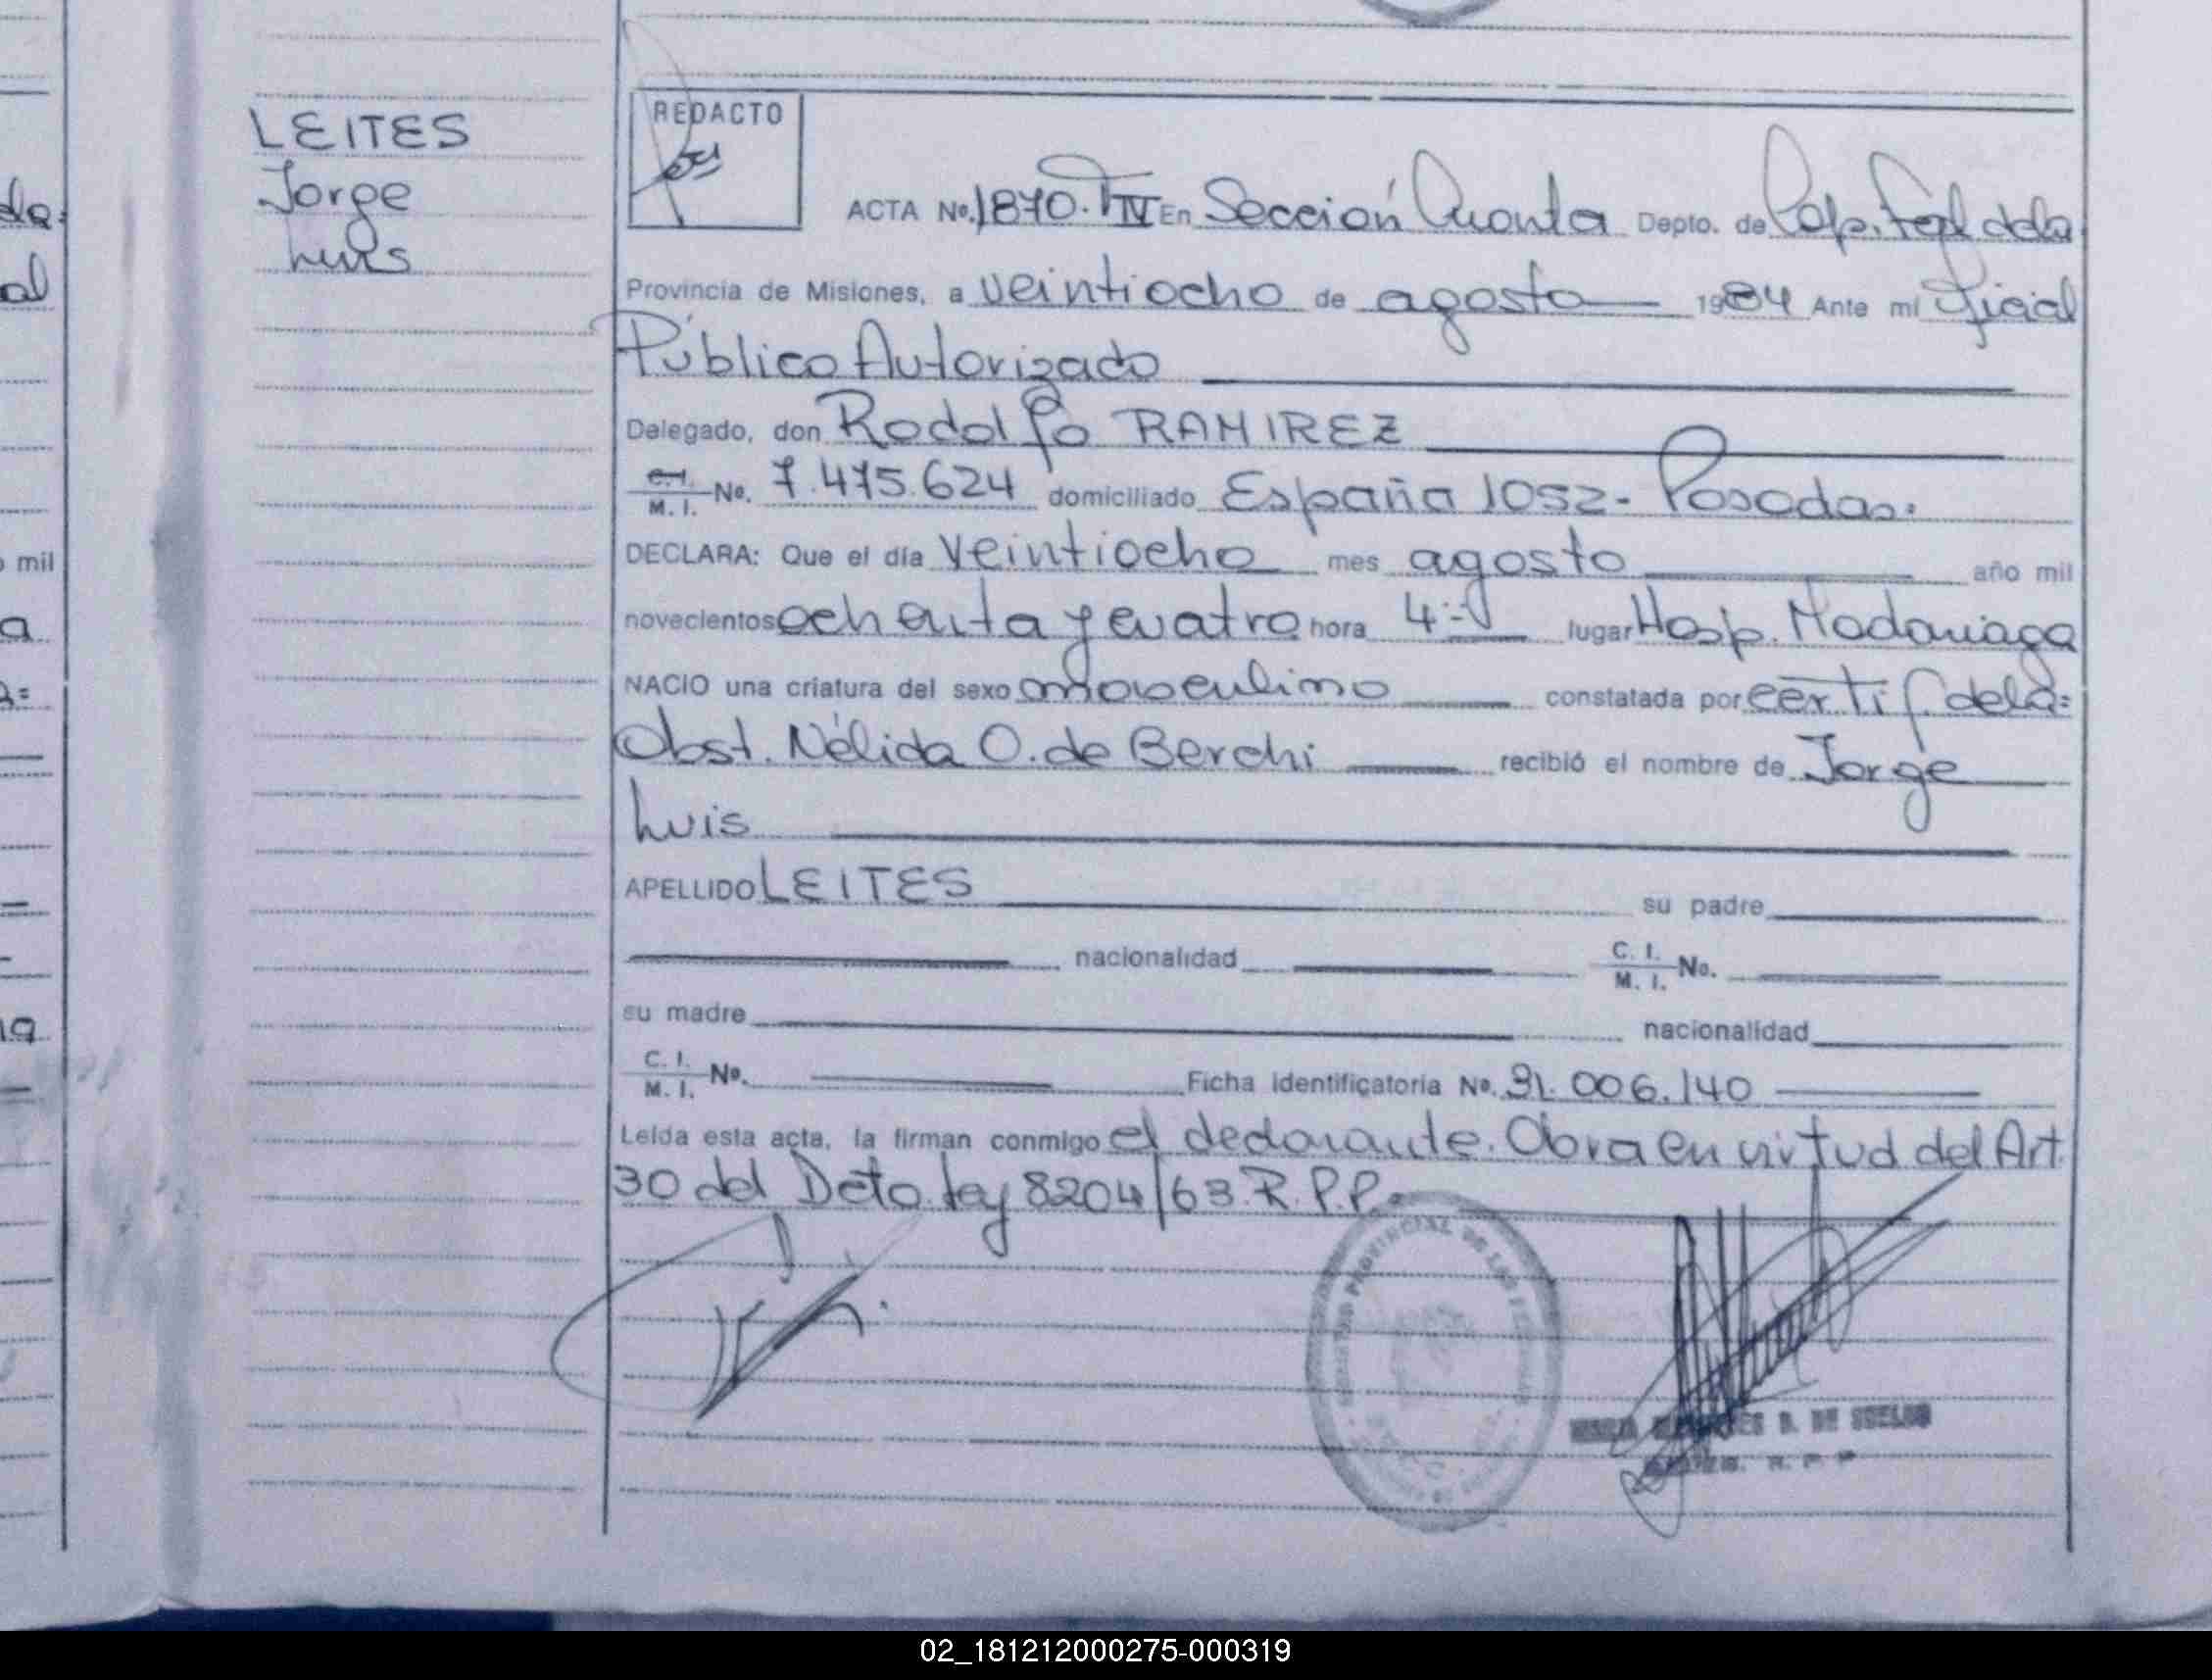 LEITES
Jorge
Luis
da=
al
o mil
a
a=
na
REDACTO
ACTA No. 1870. T IV En Sección Cuarta Depto. de Cap. Fcpl. de la
Provincia de Misiones, a veintiocho de agosto 1984 Ante mi Oficial
Público Autorizado
Delegado, don Rodolfo RAMIREZ
C.I. M. I. No. 7.475.624 domiciliado España 1052- Posadas.
DECLARA: Que el día veintiocho mes agosto año mil
novecientos ochenta y cuatro hora 4:- lugar Hosp. Madariaga
NACIO una criatura del sexo masculino constatada por certif de la=
Obst. Nélida O. de Berchi recibió el nombre de Jorge
Luis
APELLIDO LEITES su padre
nacionalidad C. I. M. I. No.
su madre nacionalidad
C. I. M. I. No. Ficha identificatoria No. 31.006.140
Leida esta acta, la firman conmigo el declarante. Obra en virtud del Art.
30 del Dcto. Ley 8204/63. R.P.P.
PROVINCIAL DE LAS
DE
02_181212000275-000319